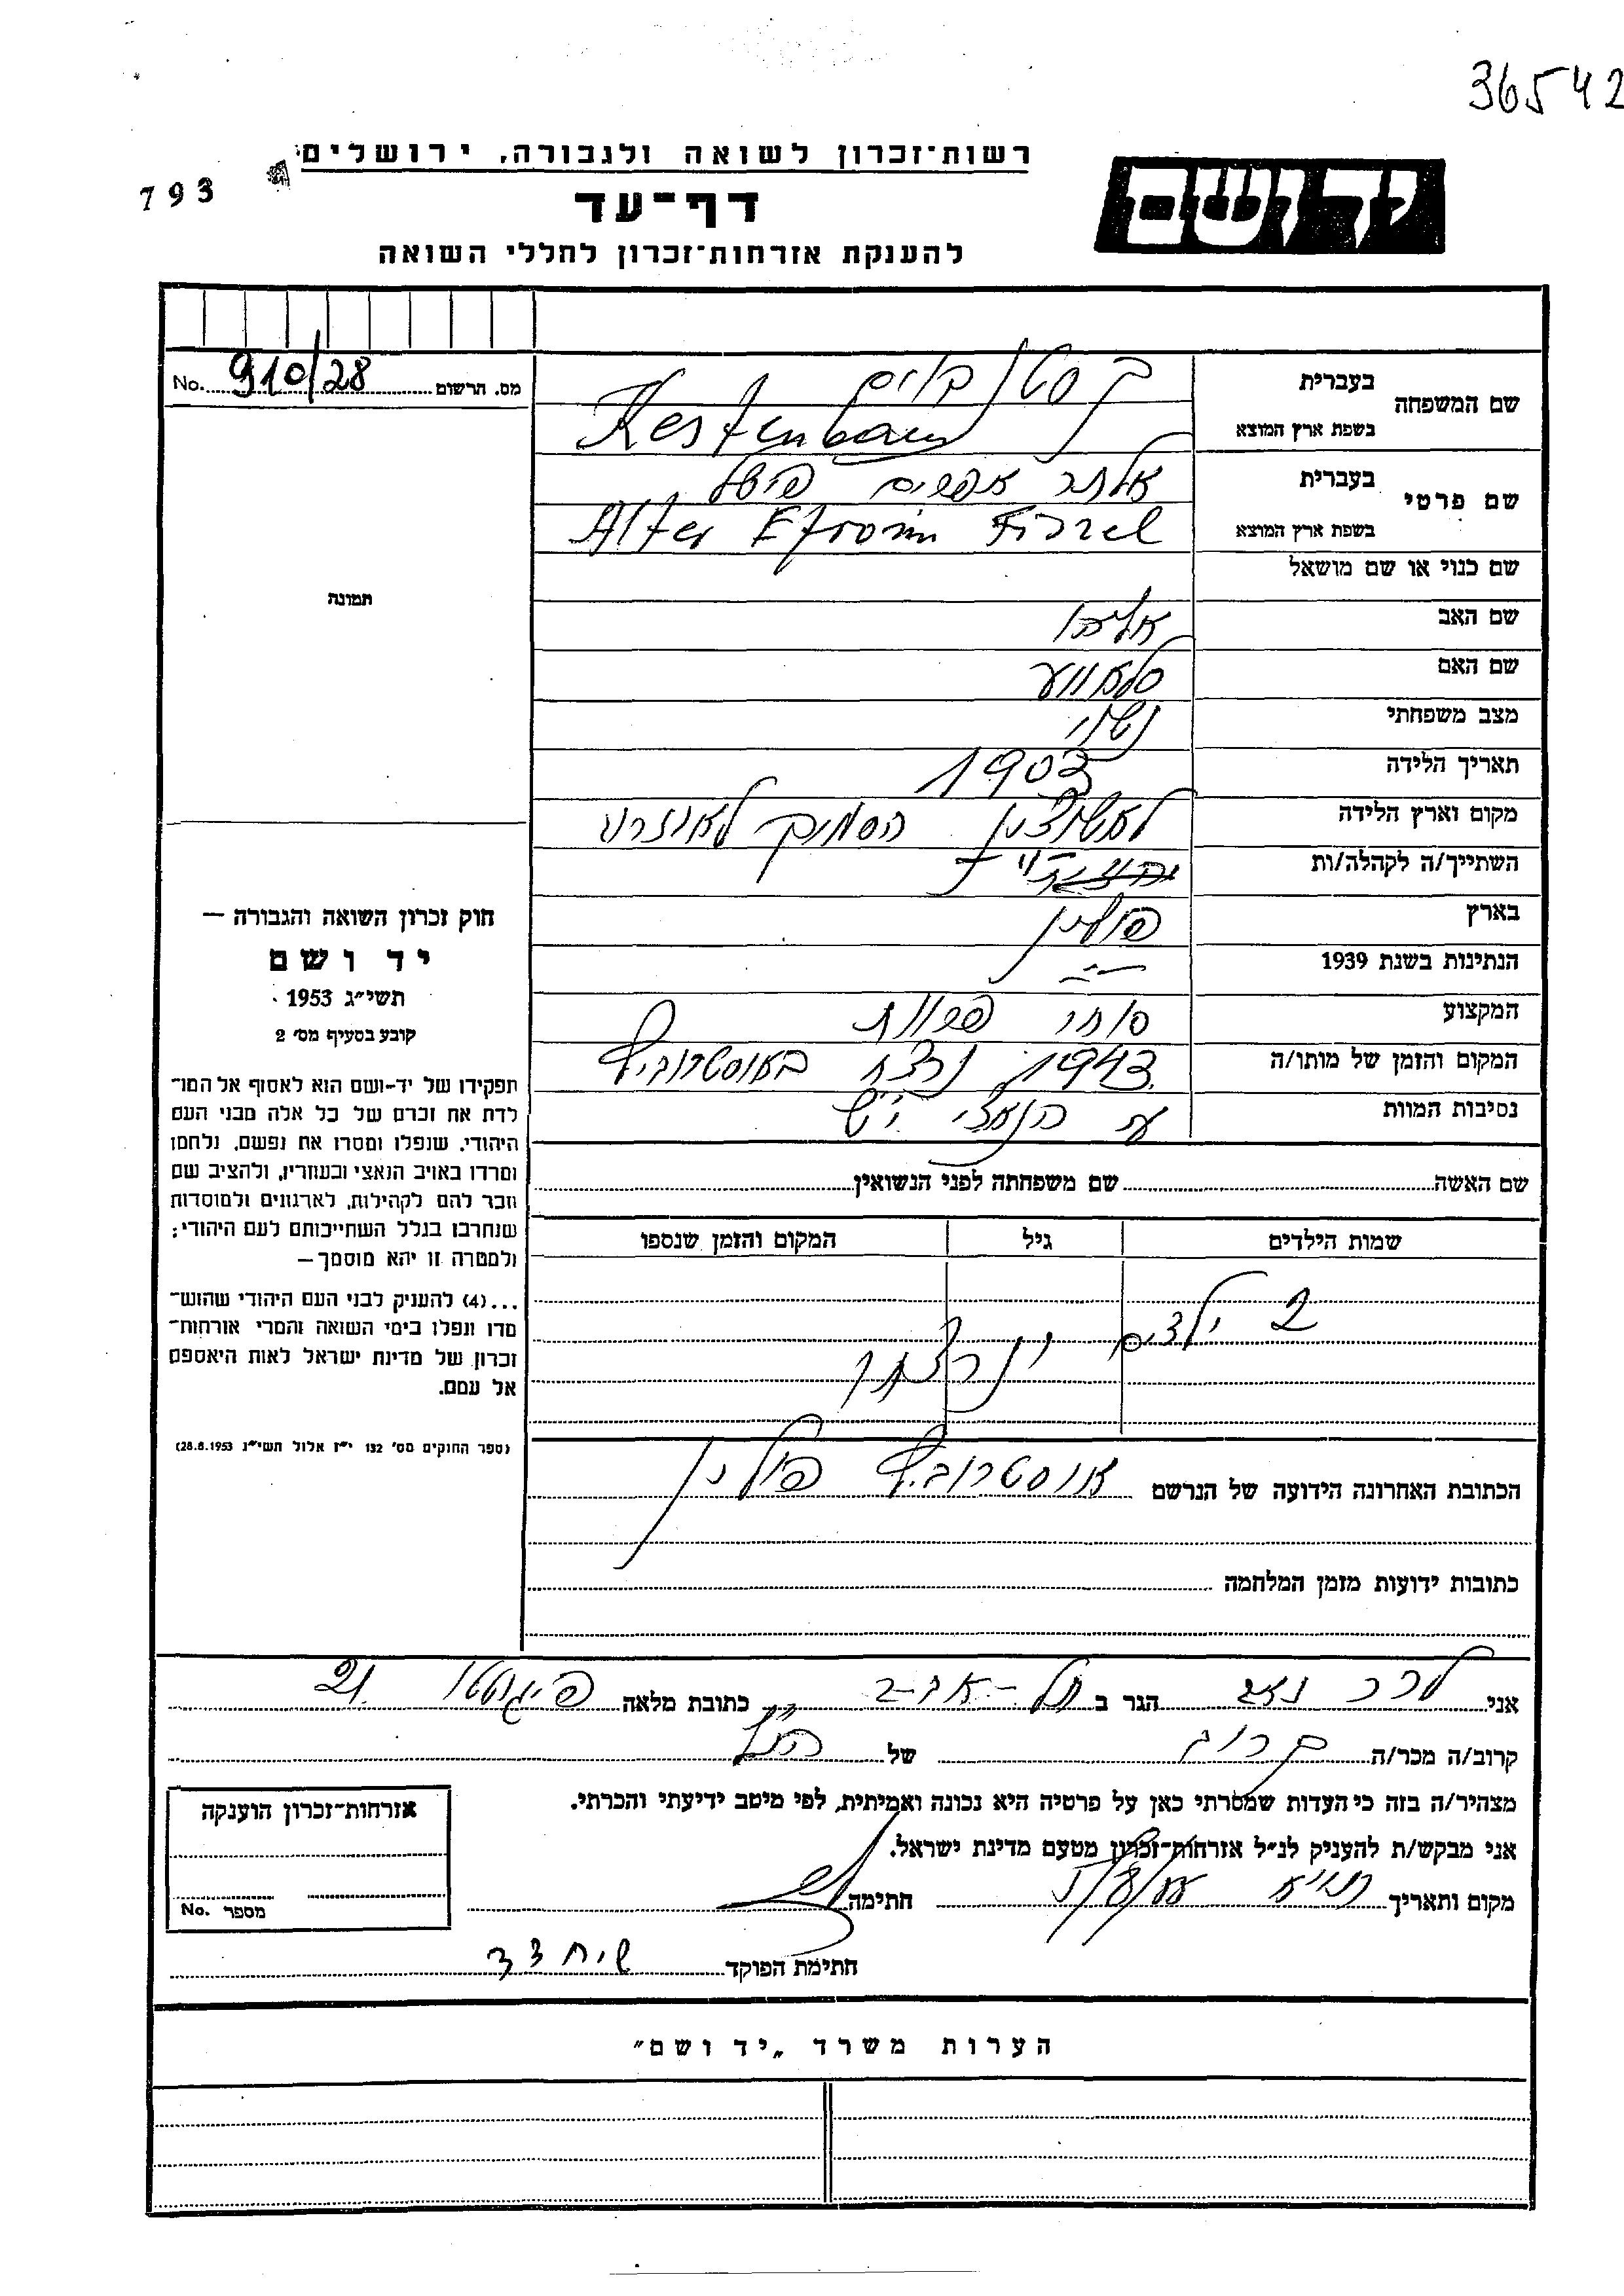 36542
רשות־זכרון לשואה ולגבורה, ירושלים
793
יד ושם
דף־עד
להענקת אזרחות־זכרון לחללי השואה
מס. הרשום 910/28 No.
שם המשפחה
בעברית קסטנבוים
בשפת ארץ המוצא Kestenbaum
שם פרטי
בעברית אלתר אפרים פישל
בשפת ארץ המוצא Alter Efroim Fiszel
שם כנוי או שם מושאל
תמונה
שם האב אליהו
שם האם
מצב משפחתי נשוי
תאריך הלידה 1903
מקום וארץ הלידה הסמוך
השתייך/ה לקהלה/ות
בארץ פולין
הנתינות בשנת 1939 —״—
המקצוע סוחר פרוות
המקום והזמן של מותו/ה 1943 נרצח
נסיבות המוות ע״י הנאצים
שם האשה שם משפחתה לפני הנשואין
שמות הילדים גיל המקום והזמן שנספו
2 ילדים נרצחו
הכתובת האחרונה הידועה של הנרשם פולין
כתובות ידועות מזמן המלחמה
חוק זכרון השואה והגבורה —
יד ושם
תשי״ג 1953
קובע בסעיף מס׳ 2
תפקידו של יד-ושם הוא לאסוף אל המו־
לדת את זכרם של כל אלה מבני העם
היהודי, שנפלו ומסרו את נפשם, נלחמו
ומרדו באויב הנאצי ובעוזריו, ולהציב שם
וזכר להם לקהילות, לארגונים ולמוסדות
שנחרבו בגלל השתייכותם לעם היהודי;
ולמטרה זו יהא מוסמך—
...(4) להעניק לבני העם היהודי שהוש־
מדו ונפלו בימי השואה והמרי אזרחות־
זכרון של מדינת ישראל לאות היאספם
אל עמם.
(ספר החוקים מס׳ 132 י״ז אלול תשי״ג 28.8.1953)
אני הגר ב תל-אביב כתובת מלאה 21
קרוב/ה מכר/ה קרוב של הנ״ל
מצהיר/ה בזה כי העדות שמסרתי כאן על פרטיה היא נכונה ואמיתית, לפי מיטב ידיעתי והכרתי.
אני מבקש/ת להעניק לנ״ל אזרחות־זכרון מטעם מדינת ישראל.
מקום ותאריך חתימה
חתימת הפוקד
אזרחות־זכרון הוענקה
מספר No.
הערות משרד „יד ושם״